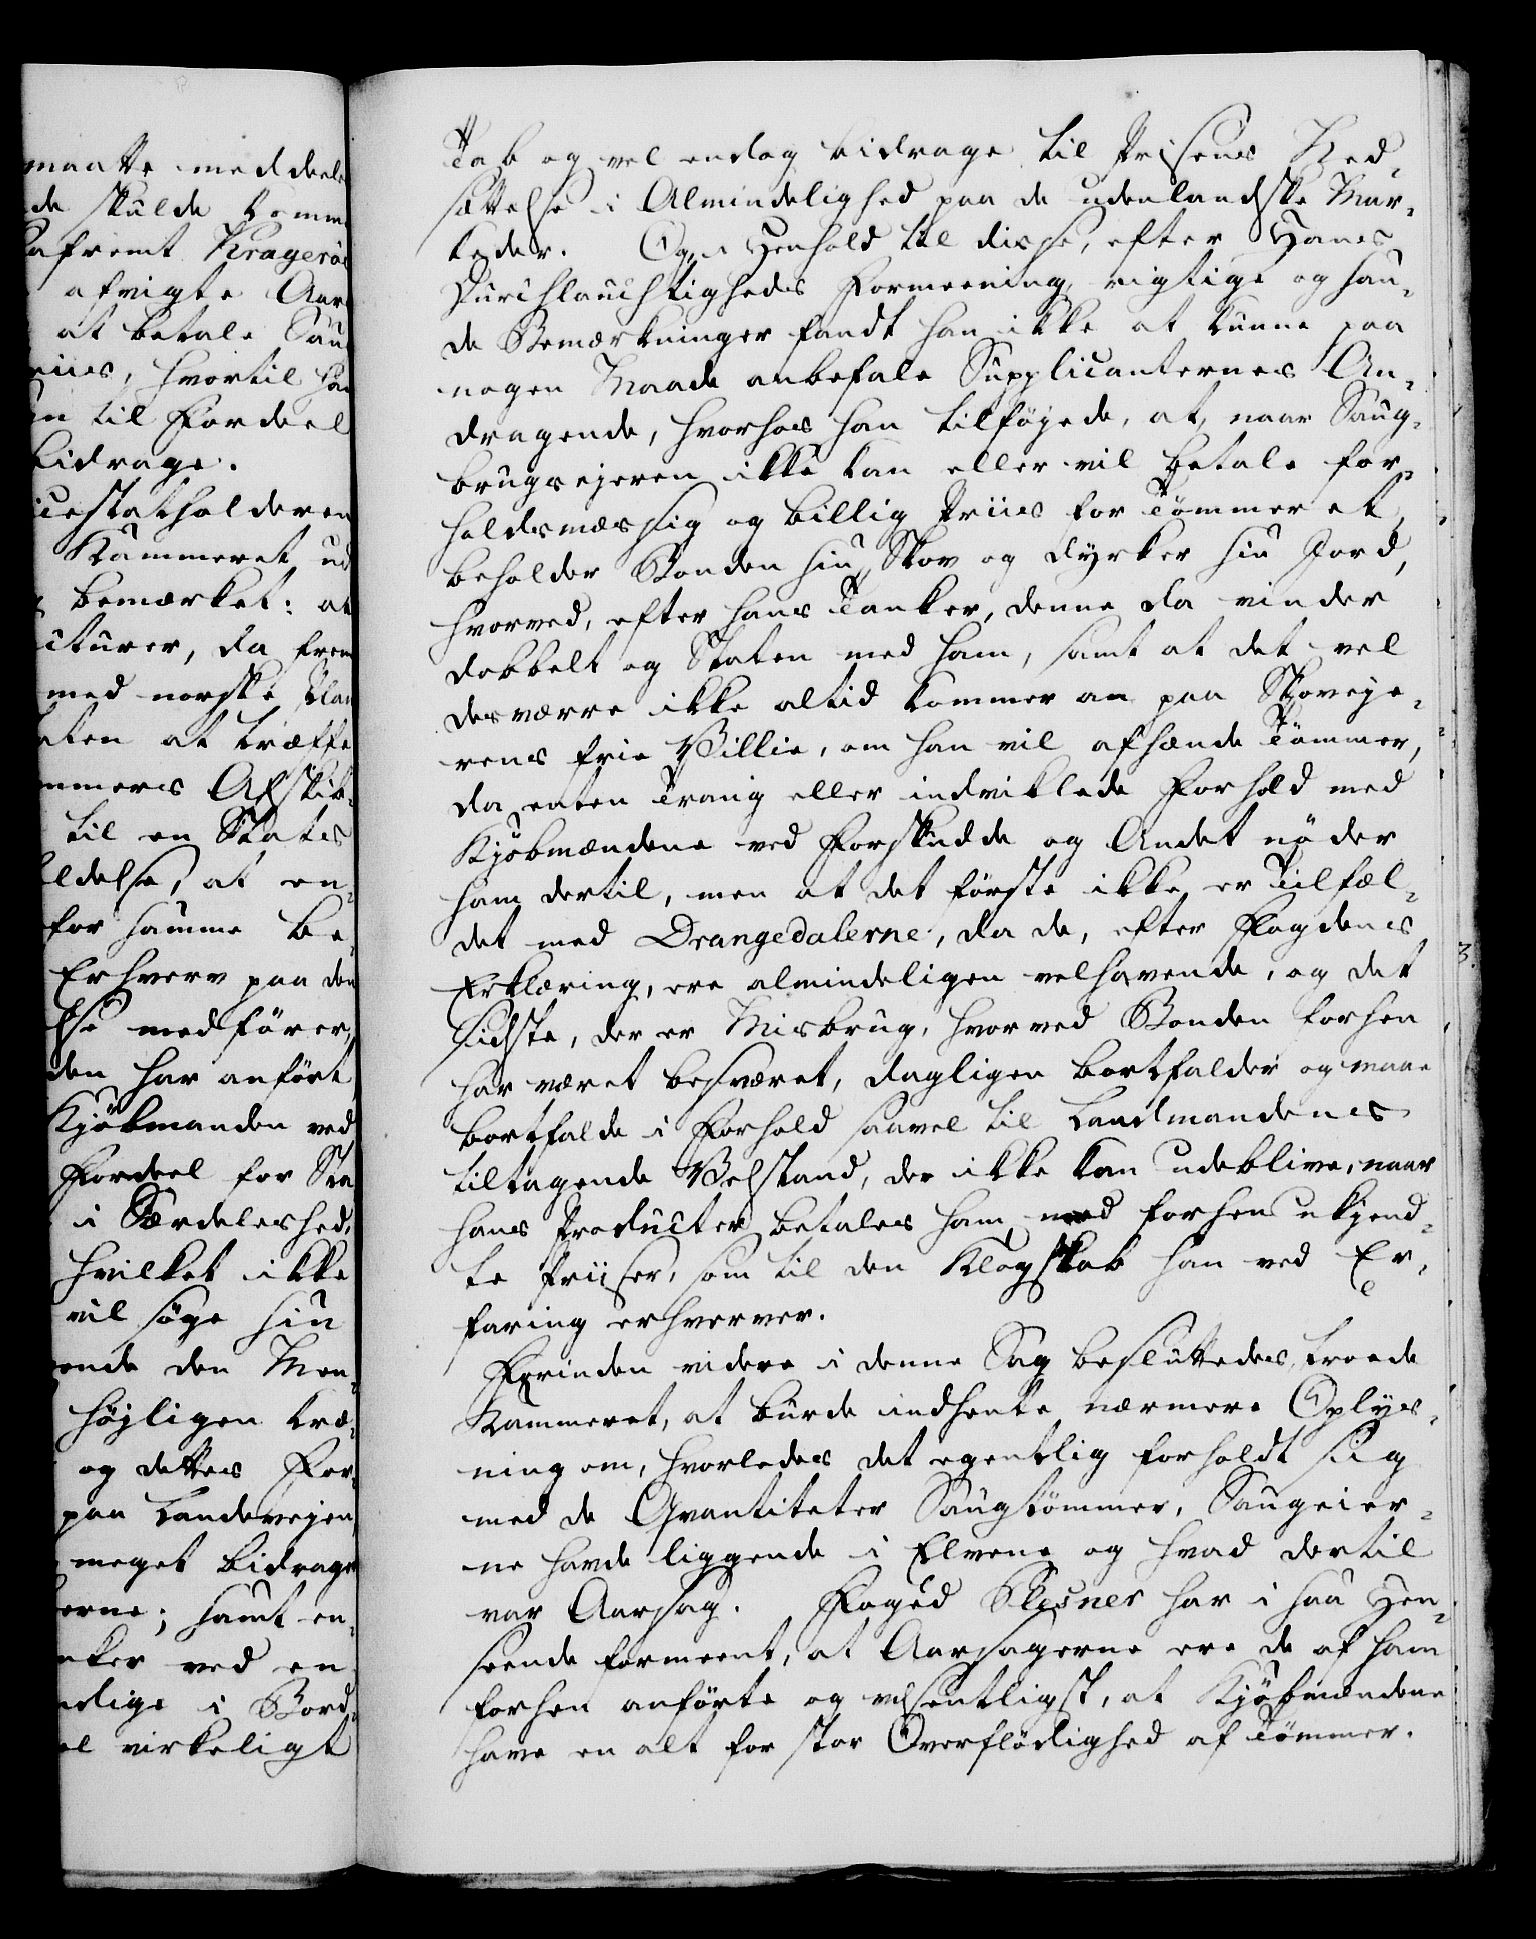 maatte meddeele
de skulde komme
afremt Krageröe
afvigte Aar
at betale Sau
riis, hvortil han
en til Fordeel
bidrage.
icestatholderen
Kammeret ud
bemærket: at
cturer, da frem
med norske Plan
aten at træffe
mmers Afskib-
til en Stats
ldelse, at en-
for samme be-
Erhverv paa den
lse medförer,
den har anfört
Kjöbmanden ved
Fordeel for Sta
i Særdeleshed,
hvilket ikke
vil söge sin
ende den Men-
höjligen træ-
og dettes For-
paa Landevejen,
meget bidrage
erne; samt en-
nker ved en
dlige i Bord-
el virkeligt
Tab og vel endog bidrage til Prisens Ned-
sættelse i Almindelighed paa de udenlandske Mar-
keder. Og i Henhold til disse, efter Hans
Durchlauchtigheds Formeening, rigtige og san-
de Bemærkninger fandt han ikke at kunne paa
nogen Maade anbefale Supplicanternes An-
dragende, hvorhos han tilföjede, at, naar Saug-
brugsejeren ikke kan eller vil betale for-
holdsmæssig og billig Priis for Tömmeret,
beholder Bonden sin Skov og dyrker sin Jord,
hvorved, efter hans Tanker, denne da vinder
dobbelt og Staten med ham, samt at det vel
desværre ikke altid kommer an paa Skoveje-
rens frie Villie, om han vil afhænde Tömmer,
da enten Trang eller indviklede Forhold med
Kjöbmændene ved Forskudde og Andet nöder
ham dertil, men at det förste ikke er Tilfæl-
det med Drangedalerne, da de, efter Fogdens
Erklæring, ere almindeligen velhavende, og det
sidste, der er Misbrug, hvorved Bonden forhen
har været besværet, dagligen bortfalder og maae
bortfalde i Forhold saavel til Landmandens
tiltagende Velstand, der ikke kan udeblive, naar
hans Producter betales ham med forhen ukjend-
te Priiser, som til den Klogskab han ved Er-
faring erhverver.
Forinden videre i denne Sag besluttedes, troede
Kammeret, at burde indhente nærmere Oplys-
ning om, hvorledes det egentlig forholdt sig
med de Qvantiteter Saugtömmer, Saugeier-
ne havde liggende i Elvene og hvad dertil
var Aarsag. Foged Plesner har i saa Hen-
seende formeent, at Aarsagerne ere de af ham
forhen anförte og væsentligst, at Kjöbmændene
have en alt for stor Overflödighed af Tömmer.
3.